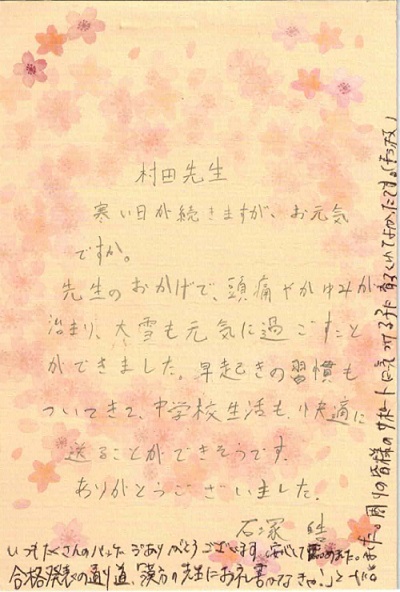 村田先生
寒い日が続きますが、お元気
ですか。
先生のおかげで、頭痛やかゆみが
治まり、大雪も元気に過ごすこと
ができました。早起きの習慣も
ついてきて、中学校生活も、快適に
送ることができそうです。
ありがとうございました。
石塚 皓
いつもたくさんのハートをありがとうございます。
合格発表の通り道、漢方の先生にお礼書かなきゃ!」と
周りの皆様のサポートに